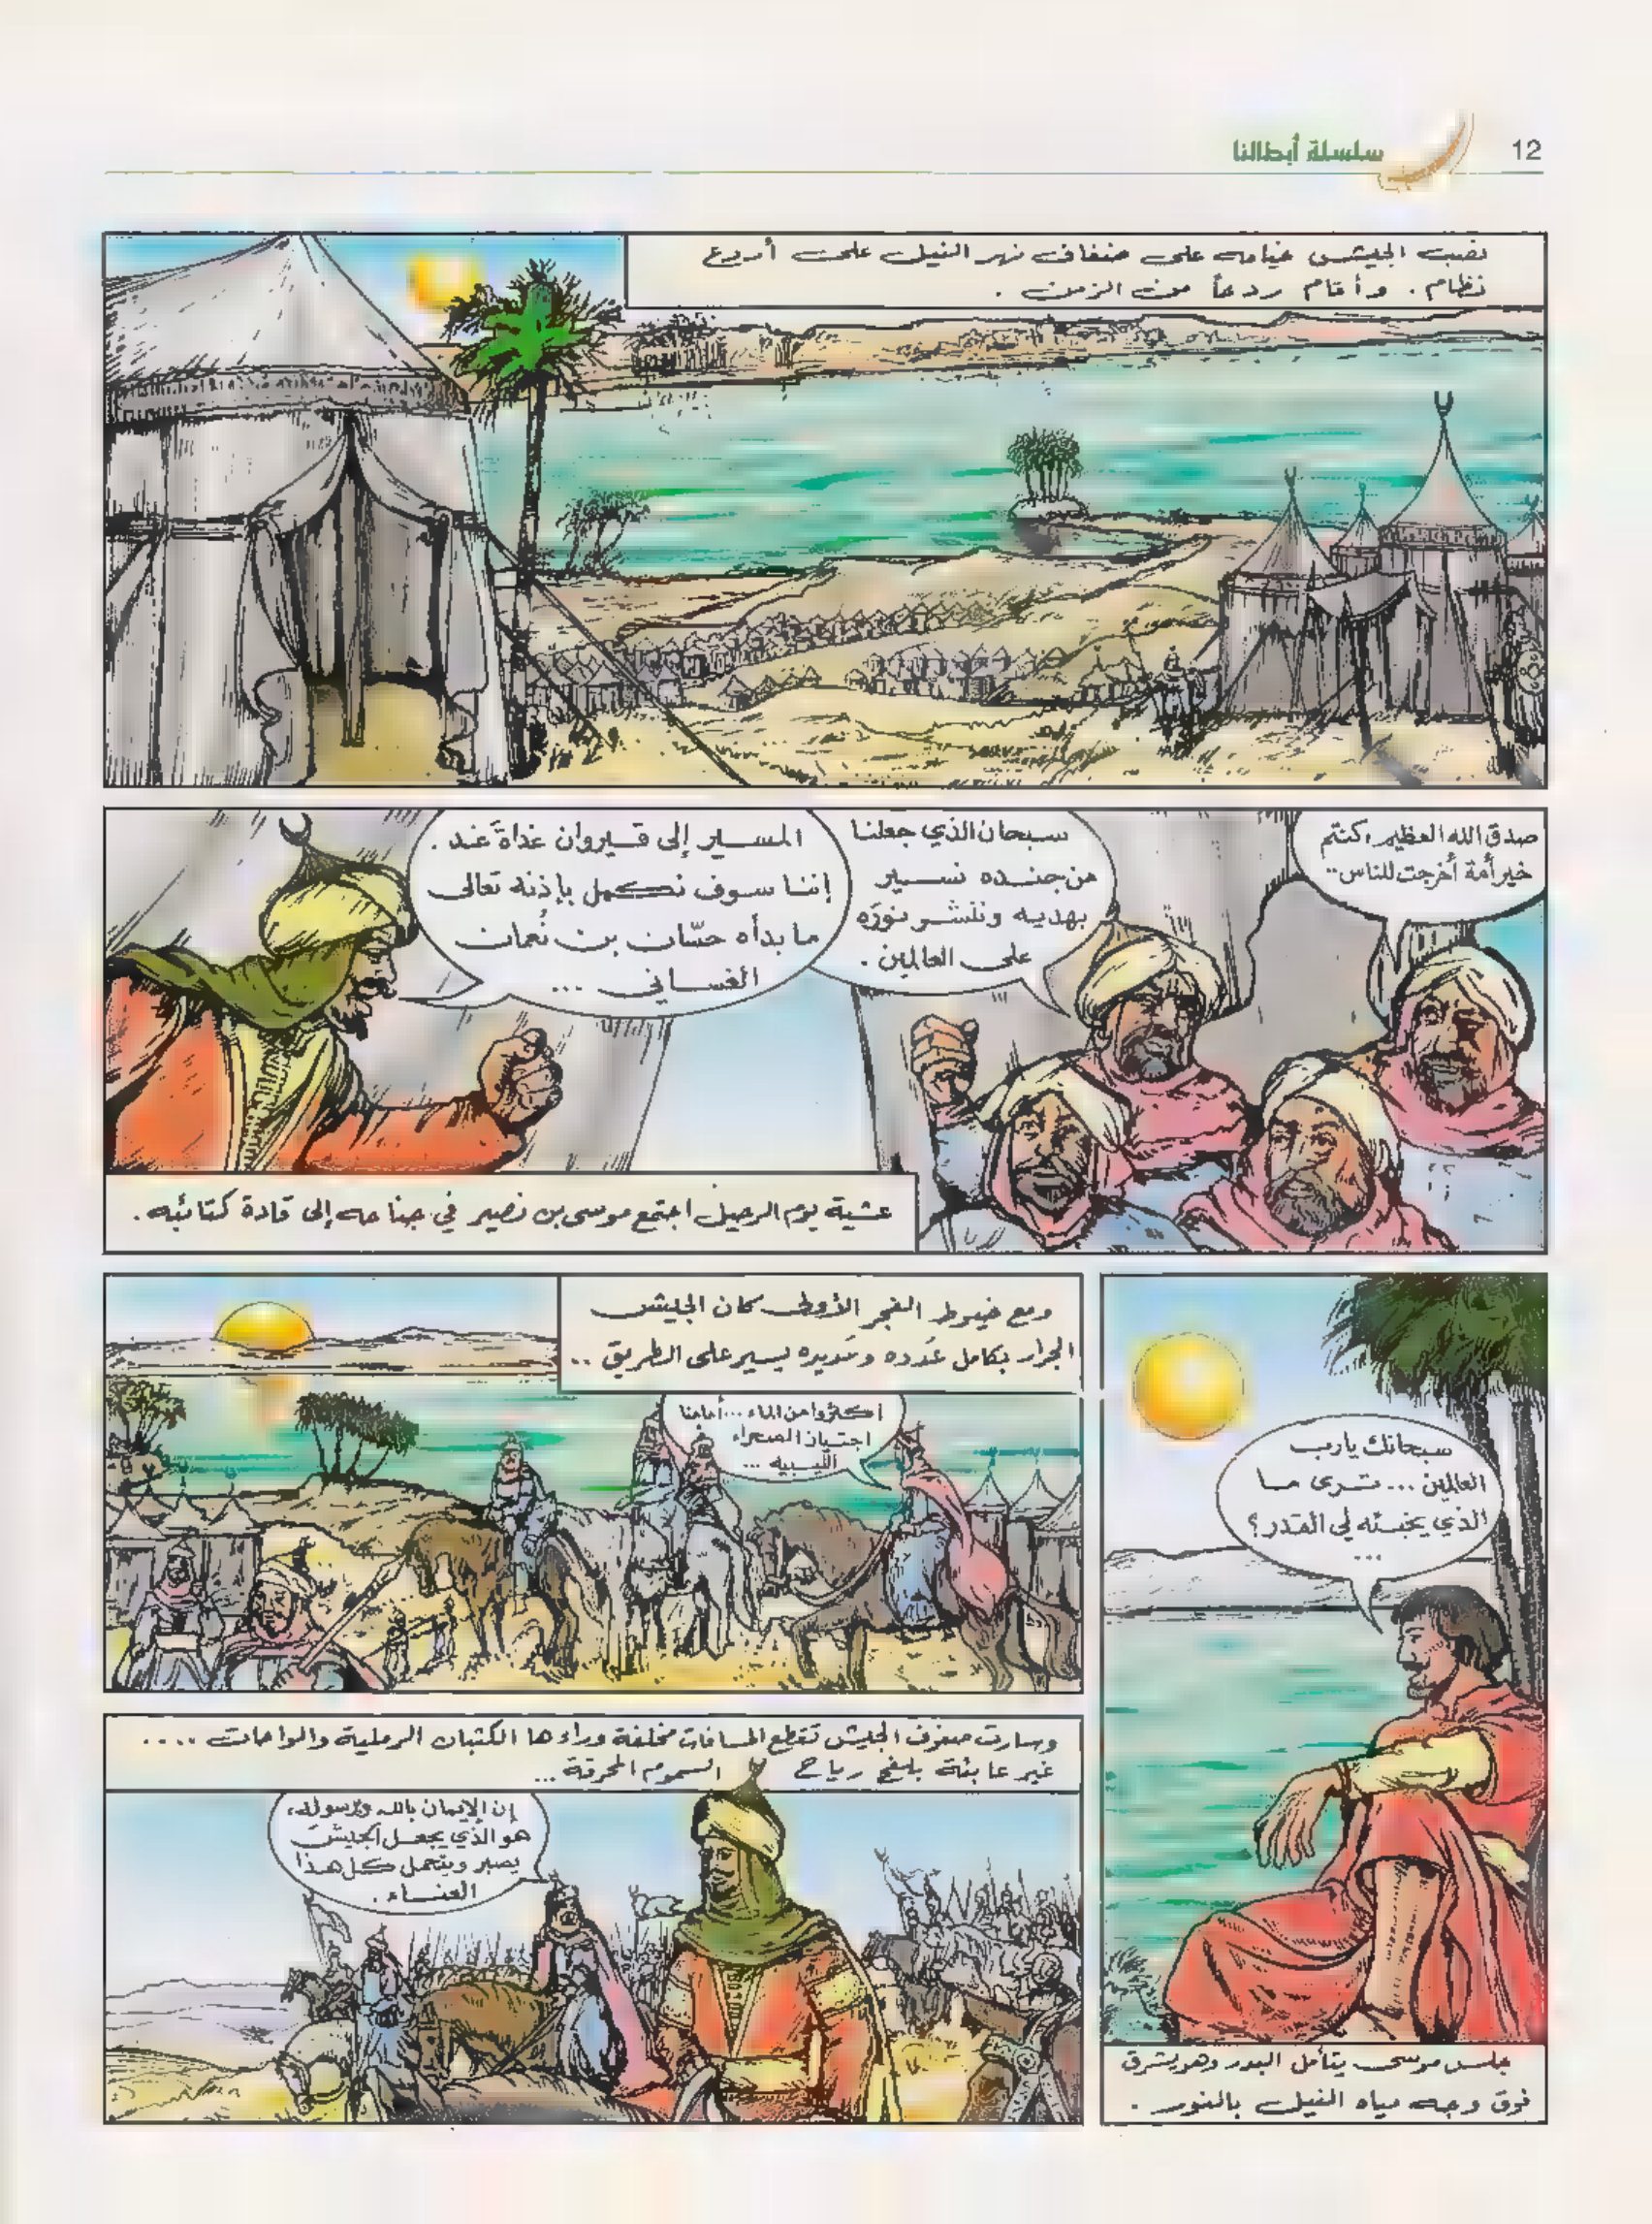 12
سلسلة أبطالنا
نصب الجيش خيامه على ضفاف نهر النيل على أروع
نظام . وأقام ردحاً من الزمن .
صدق الله العظيم ، كنتم
خير أمة أخرجت للناس ..
سبحان الذي جعلنا
من جنده نسير
بهديه وننشر نوره
على العالمين .
المسير إلى قيروان غداة غد .
إننا سوف نكمل بإذنه تعالى
ما بدأه حسّان بن نُعمان
الغساني ...
عشية يوم الرحيل اجتمع موسى بن نصير في جناحه إلى قادة كتائبه .
سبحانك يارب
العالمين ... ترى ما
الذي يخبئه لي القدر ؟
...
جلس موسى يتأمل البدر وهو يشرق
فوق وجه مياه النيل بالنور .
ومع خيوط الفجر الأولى كان الجيش
الجرار بكامل عَدده وعَديده يسير على الطريق ..
أكثروا من الماء ... أمامنا
اجتياز الصحراء
الليبية ...
وسارت صفوف الجيش تقطع المسافات مخلفة وراءها الكثبان الرملية والواحات ....
غير عابئة بلفح رياح السموم المحرقة ...
إن الإيمان بالله وبرسوله ،
هو الذي يجعل الجيش
يصبر ويتحمل كل هذا
العناء .